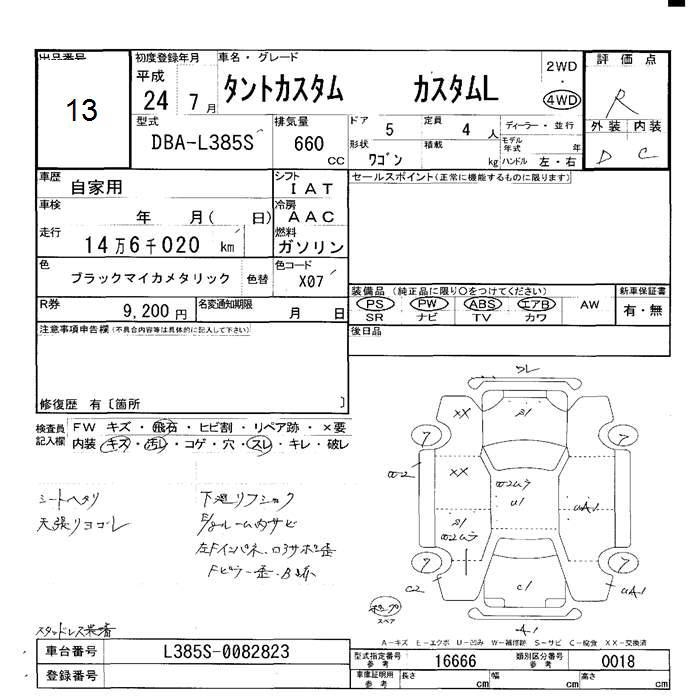 出品番号
13
初度登録年月
平成
24 7月
車名・グレード
タントカスタム カスタムL
2WD
・
4WD
評価点
R
外装 内装
D C
型式
DBA-L385S
排気量
660
CC
ドア
5
定員
4 人
ディーラー・並行
形状
ワゴン
積載
kg
モデル年式
年
ハンドル 左・右
車歴
自家用
シフト
IAT
セールスポイント(正常に機能するものに限ります)
車検
年 月( 日)
冷房
AAC
走行
14万6千020 km
燃料
ガソリン
色
ブラックマイカメタリック 色替
色コード
X07
装備品 (純正品に限り○をつけてください)
PS PW ABS エアB AW
SR ナビ TV カワ
新車保証書
有・無
R券
9,200円
名変通知期限
月 日
後日品
注意事項申告欄(不具合内容等は具体的に記入して下さい)
修復歴 有〔箇所 〕
検査員記入欄
FW キズ・飛石・ヒビ割・リペア跡・×要
内装 キズ・汚レ・コゲ・穴・スレ・キレ・破レ
シートヘタリ
天張リヨゴレ
下廻リフショク
E/gルーム内サビ
スタッドレス装着
XX
XX
7
7
7
7
S1
U1
UA1
C2
C1
UA1
A1
スペア
A-キズ E-エクボ U-凹み W-補修跡 S-サビ C-腐食 XX-交換済
車台番号
L385S-0082823
登録番号
型式指定番号
参考
16666
類別区分番号
参考
0018
車庫証明用
参考
長さ cm 幅 cm 高さ cm